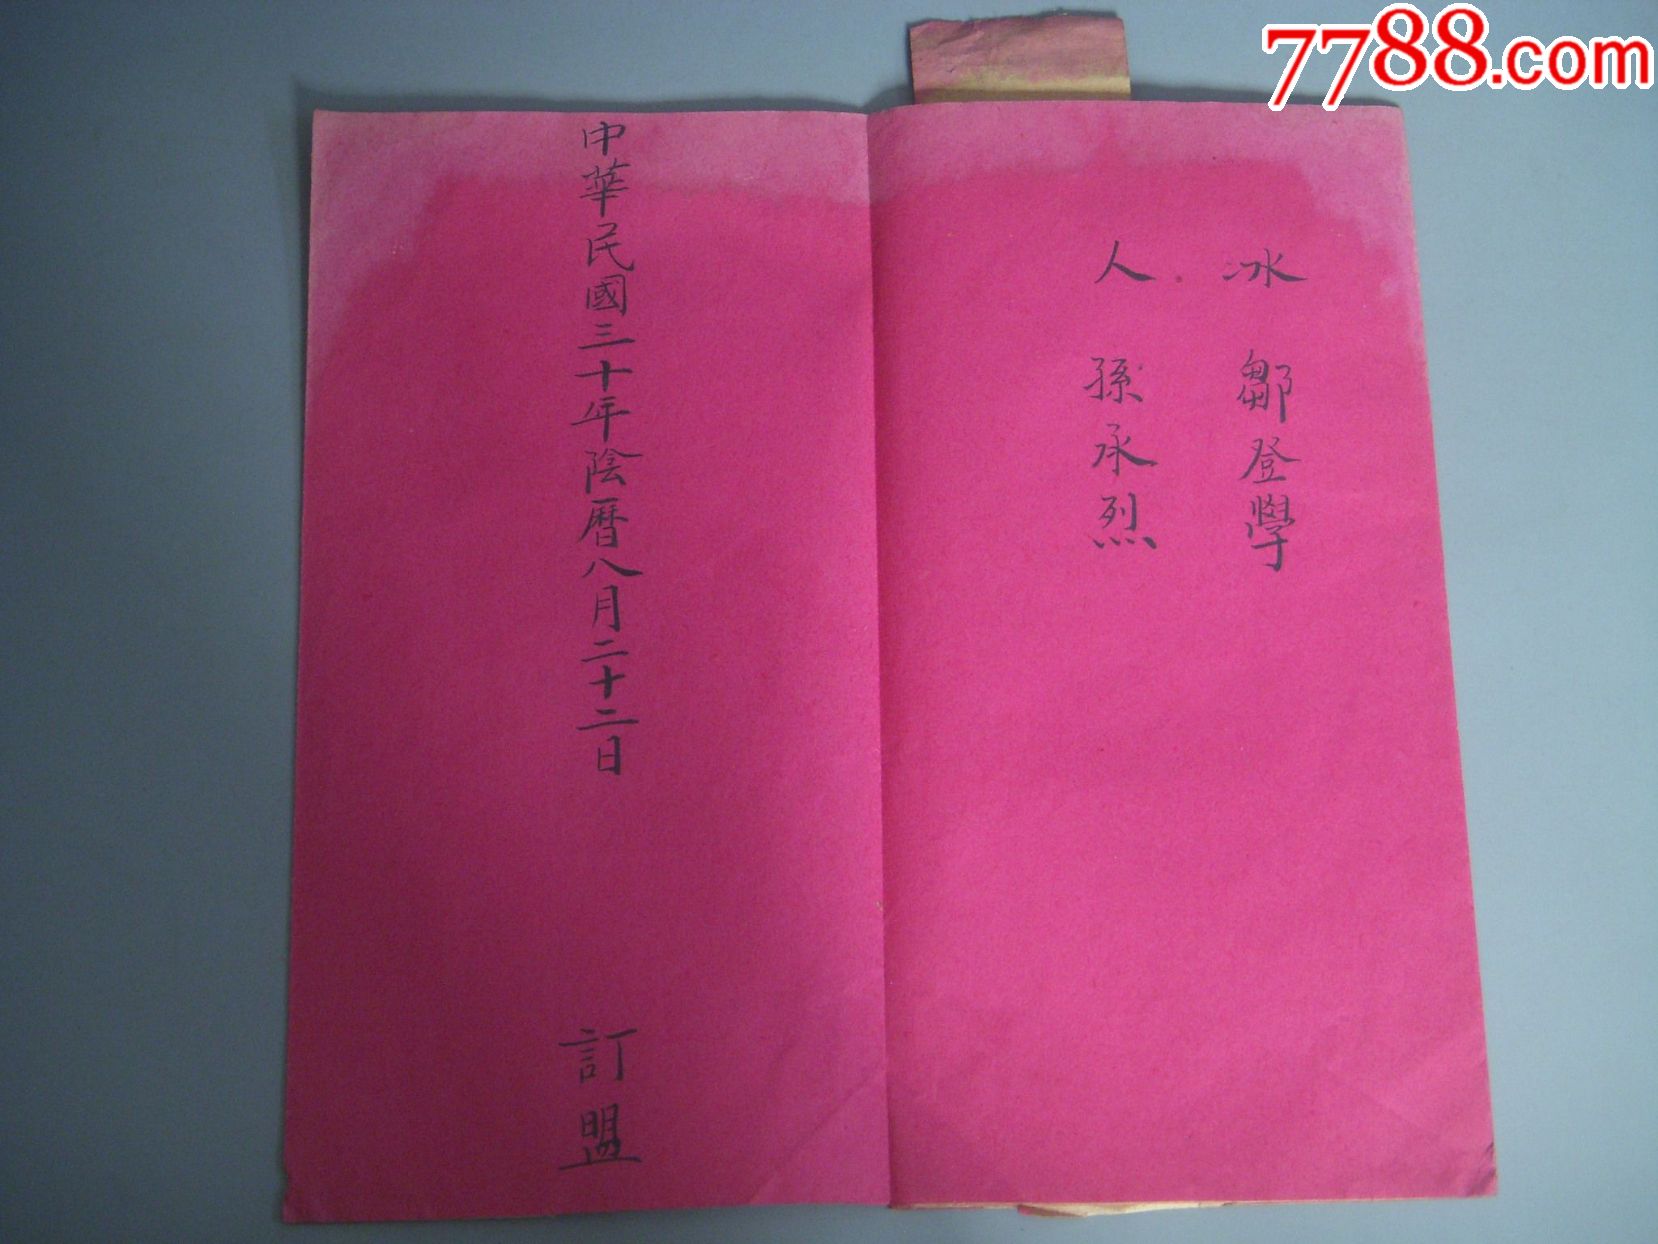 7788.com
冰 鄒登學
人 孫承烈
中華民國三十年陰曆八月二十二日 訂盟